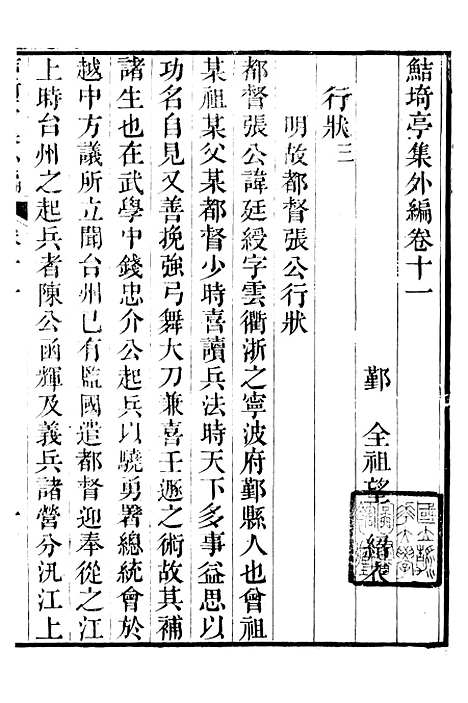 鮚埼亭集外編卷十一
鄞　全祖望　紹衣
行狀三
明故都督張公行狀
都督張公諱廷綬字雲衢浙之寧波府鄞縣人也曾祖
某祖某父某都督少時喜讀兵法時天下多事益思以
功名自見又善挽強弓舞大刀兼喜壬遯之術故其補
諸生也在武學中錢忠介公起兵以驍勇署總統會於
越中方議所立聞台州已有監國遣都督迎奉從之江
上時台州之起兵者陳公函輝及義兵諸營分汛江上